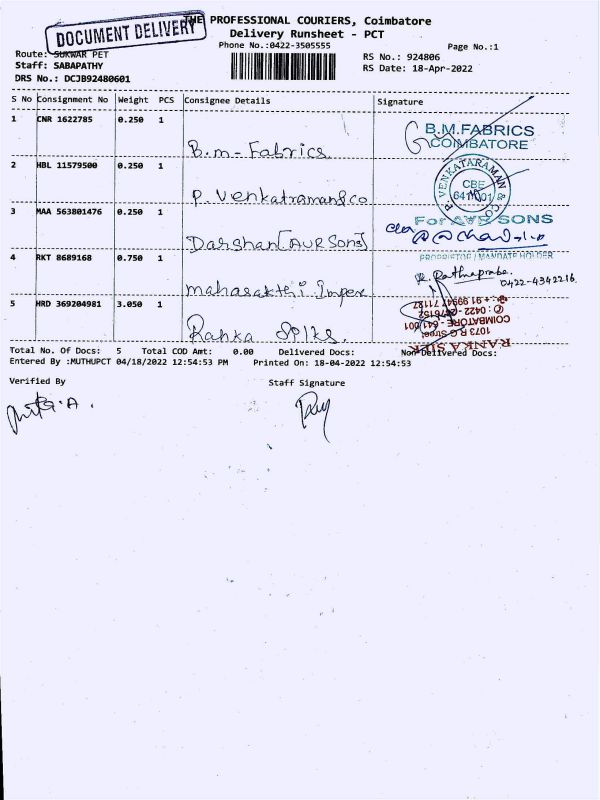 DOCUMENT DELIVERY
THE PROFESSIONAL COURIERS, Coimbatore
Delivery Runsheet - PCT
Phone No.:0422-3505555
Page No.:1
Route: SUKWAR PET
RS No.: 924806
Staff: SABAPATHY
RS Date: 18-Apr-2022
DRS No.: DCJB92480601
S No Consignment No Weight PCS Consignee Details Signature
1 CNR 1622785 0.250 1
B.M.FABRICS
COIMBATORE
B.m - Fabrics
2 HBL 11579500 0.250 1
P. VENKATARAMAN & CO
CBE
641 001
P. Venkatraman & co
3 MAA 563801476 0.250 1
For AVR SONS
Darshan [AVR Sons]
PROPRIETOR / MANDATE HOLDER
4 RKT 8689168 0.750 1
0422-4342216.
mahasakthi Impex
5 HRD 369204981 3.050 1
RANKA SILK
1073 R.G. Street,
COIMBATORE - 641 001
Ranka Silks.
Total No. Of Docs: 5 Total COD Amt: 0.00 Delivered Docs: Non-Delivered Docs:
Entered By :MUTHUPCT 04/18/2022 12:54:53 PM Printed On: 18-04-2022 12:54:53
Verified By Staff Signature